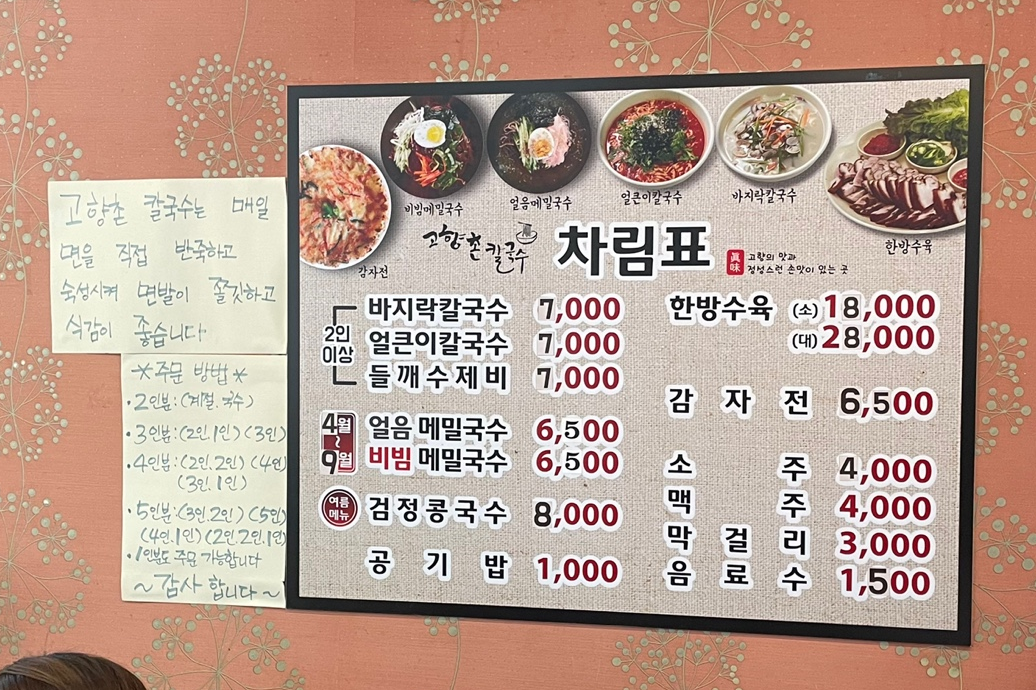 고향촌 칼국수는 매일
면을 직접 반죽하고
숙성시켜 면발이 쫄깃하고
식감이 좋습니다
*주문 방법*
·2인분:(계절.국수)
·3인분:(2인.1인)(3인)
·4인분:(2인.2인)(4인)
(3인.1인)
·5인분:(3인.2인)(5인)
(4인.1인)(2인.2인.1인)
·1인분도 주문 가능합니다
~감사 합니다~
감자전
비빔메밀국수
얼음메밀국수
얼큰이칼국수
바지락칼국수
한방수육
고향촌칼국수
차림표
眞味
고향의 맛과
정성스런 손맛이 있는 곳
2인 이상
바지락칼국수 7,000
얼큰이칼국수 7,000
들깨수제비 7,000
4월~9월
얼음메밀국수 6,500
비빔메밀국수 6,500
여름메뉴
검정콩국수 8,000
공기밥 1,000
한방수육 (소)18,000
(대)28,000
감자전 6,500
소주 4,000
맥주 4,000
막걸리 3,000
음료수 1,500